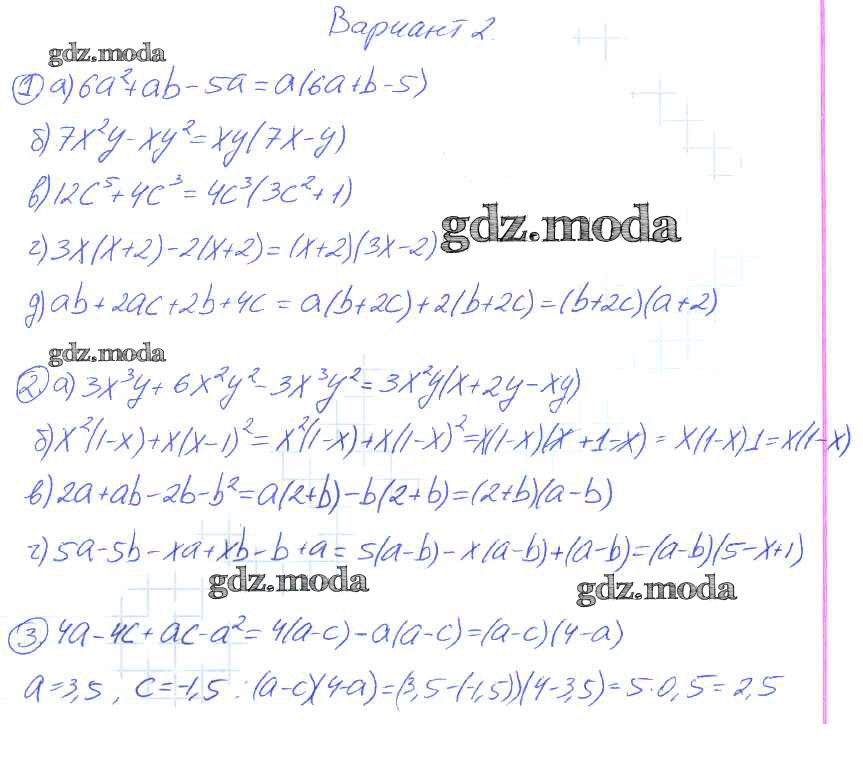 Вариант 2.
gdz.moda
① а) 6a²+ab-5a=a(6a+b-5)
б) 7x²y-xy²=xy(7x-y)
в) 12c⁵+4c³=4c³(3c²+1)
gdz.moda
г) 3x(x+2)-2(x+2)=(x+2)(3x-2)
д) ab+2ac+2b+4c=a(b+2c)+2(b+2c)=(b+2c)(a+2)
gdz.moda
② а) 3x³y+6x²y²-3x³y²=3x²y(x+2y-xy)
б) x²(1-x)+x(x-1)²=x²(1-x)+x(1-x)²=x(1-x)(x+1-x)=x(1-x)1=x(1-x)
в) 2a+ab-2b-b²=a(2+b)-b(2+b)=(2+b)(a-b)
г) 5a-5b-xa+xb-b+a=5(a-b)-x(a-b)+(a-b)=(a-b)(5-x+1)
gdz.moda gdz.moda
③ 4a-4c+ac-a²=4(a-c)-a(a-c)=(a-c)(4-a)
a=3,5, c=-1,5: (a-c)(4-a)=(3,5-(-1,5))(4-3,5)=5·0,5=2,5